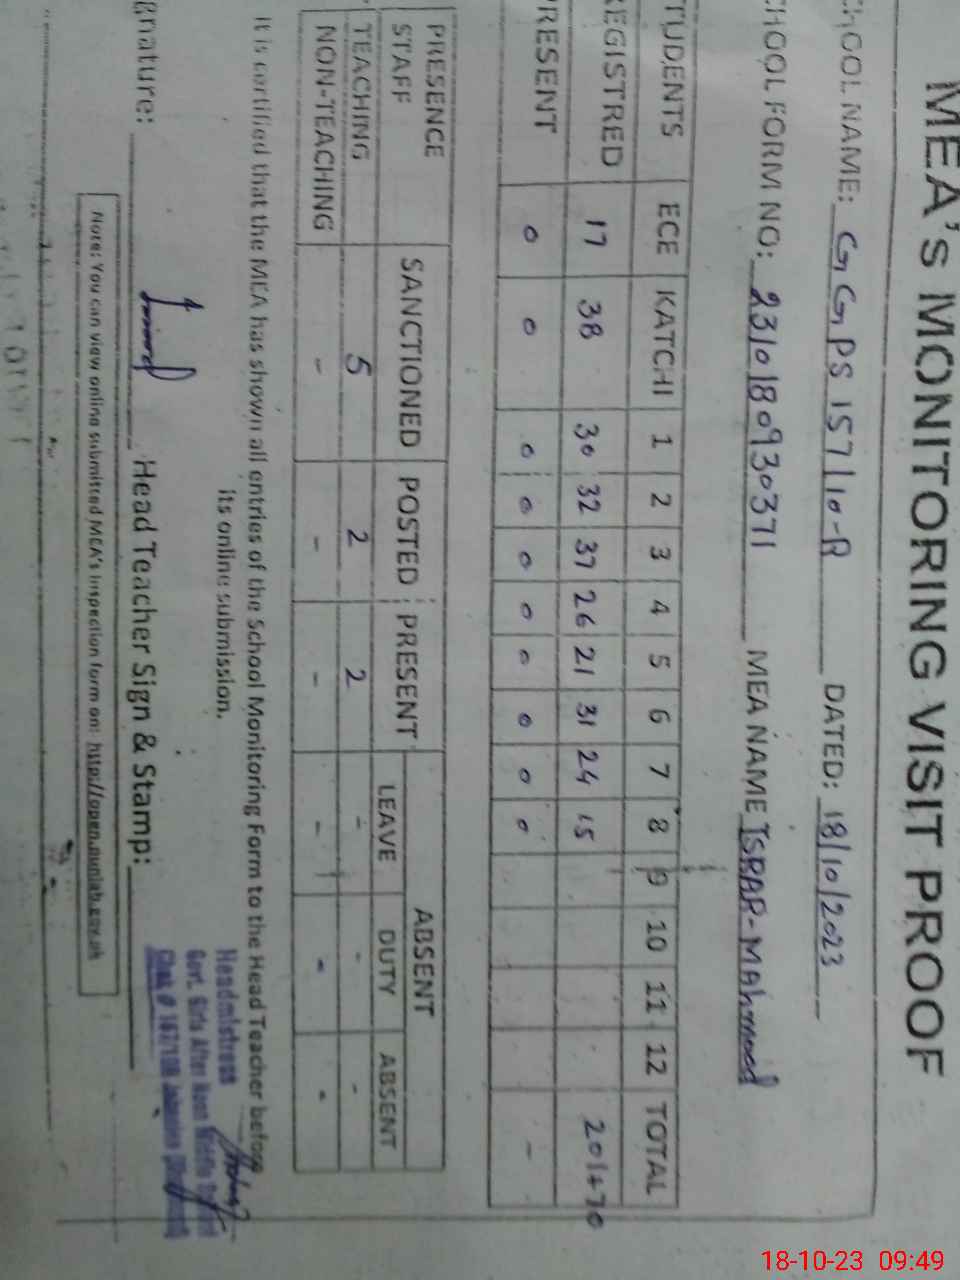 MEA's MONITORING VISIT PROOF
CHOOL NAME: GGPS 157/10-R DATED: 18/10/2023
CHOOL FORM NO: 2310180930371 MEA NAME ISRAR-MAhmood
TUDENTS ECE KATCHI 1 2 3 4 5 6 7 8 9 10 11 12 TOTAL
REGISTRED 17 38 30 32 37 26 21 31 24 15 201+70
PRESENT 0 0 0 0 0 0 0 0 0 0 -
PRESENCE STAFF SANCTIONED POSTED PRESENT ABSENT
LEAVE DUTY ABSENT
TEACHING 5 2 2 - - -
NON-TEACHING - - - - - -
It is certified that the MEA has shown all entries of the School Monitoring Form to the Head Teacher before
its online submission.
gnature: Head Teacher Sign & Stamp:
Headmistress
Govt. Girls After Noon Middle
Chak #
Note: You can view online submitted MEA's Inspection form on: http://open.punjab.gov.pk
18-10-23 09:49